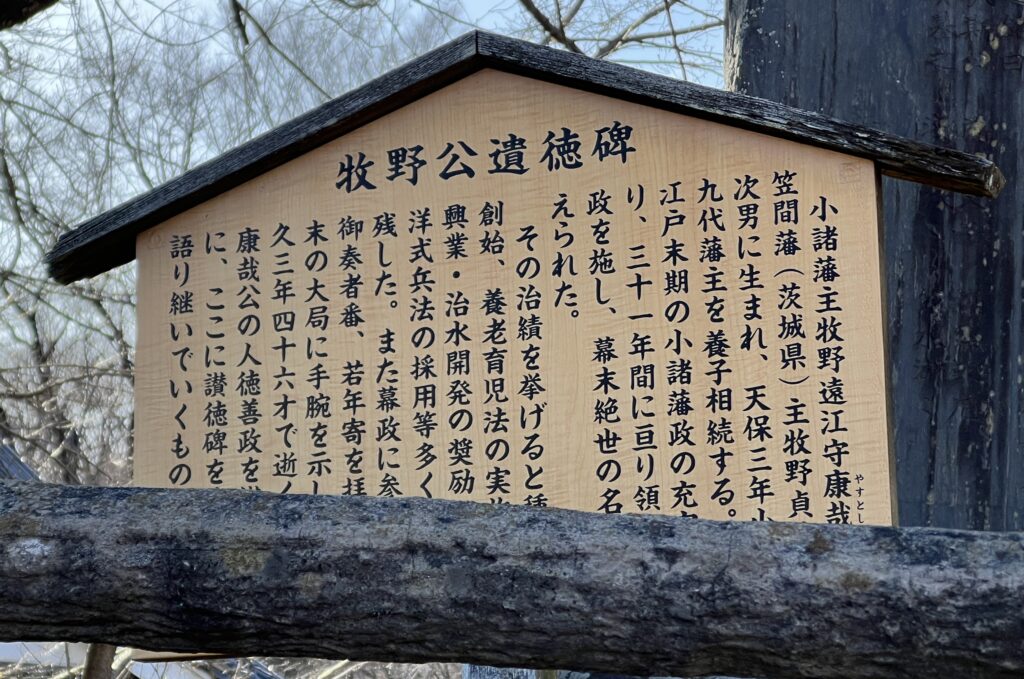 牧野公遺徳碑
小諸藩主牧野遠江守康哉
やすとし
笠間藩(茨城県)主牧野貞
次男に生まれ、天保三年小
九代藩主を養子相続する。
江戸末期の小諸藩政の充
り、三十一年間に亘り領
政を施し、幕末絶世の名
えられた。
その治績を挙げると種
創始、養老育児法の実
興業・治水開発の奨励
洋式兵法の採用等多く
残した。また幕政に参
御奏者番、若年寄を拝
末の大局に手腕を示し
久三年四十六才で逝く
康哉公の人徳善政を
に、ここに讃徳碑を
語り継いでいくもの